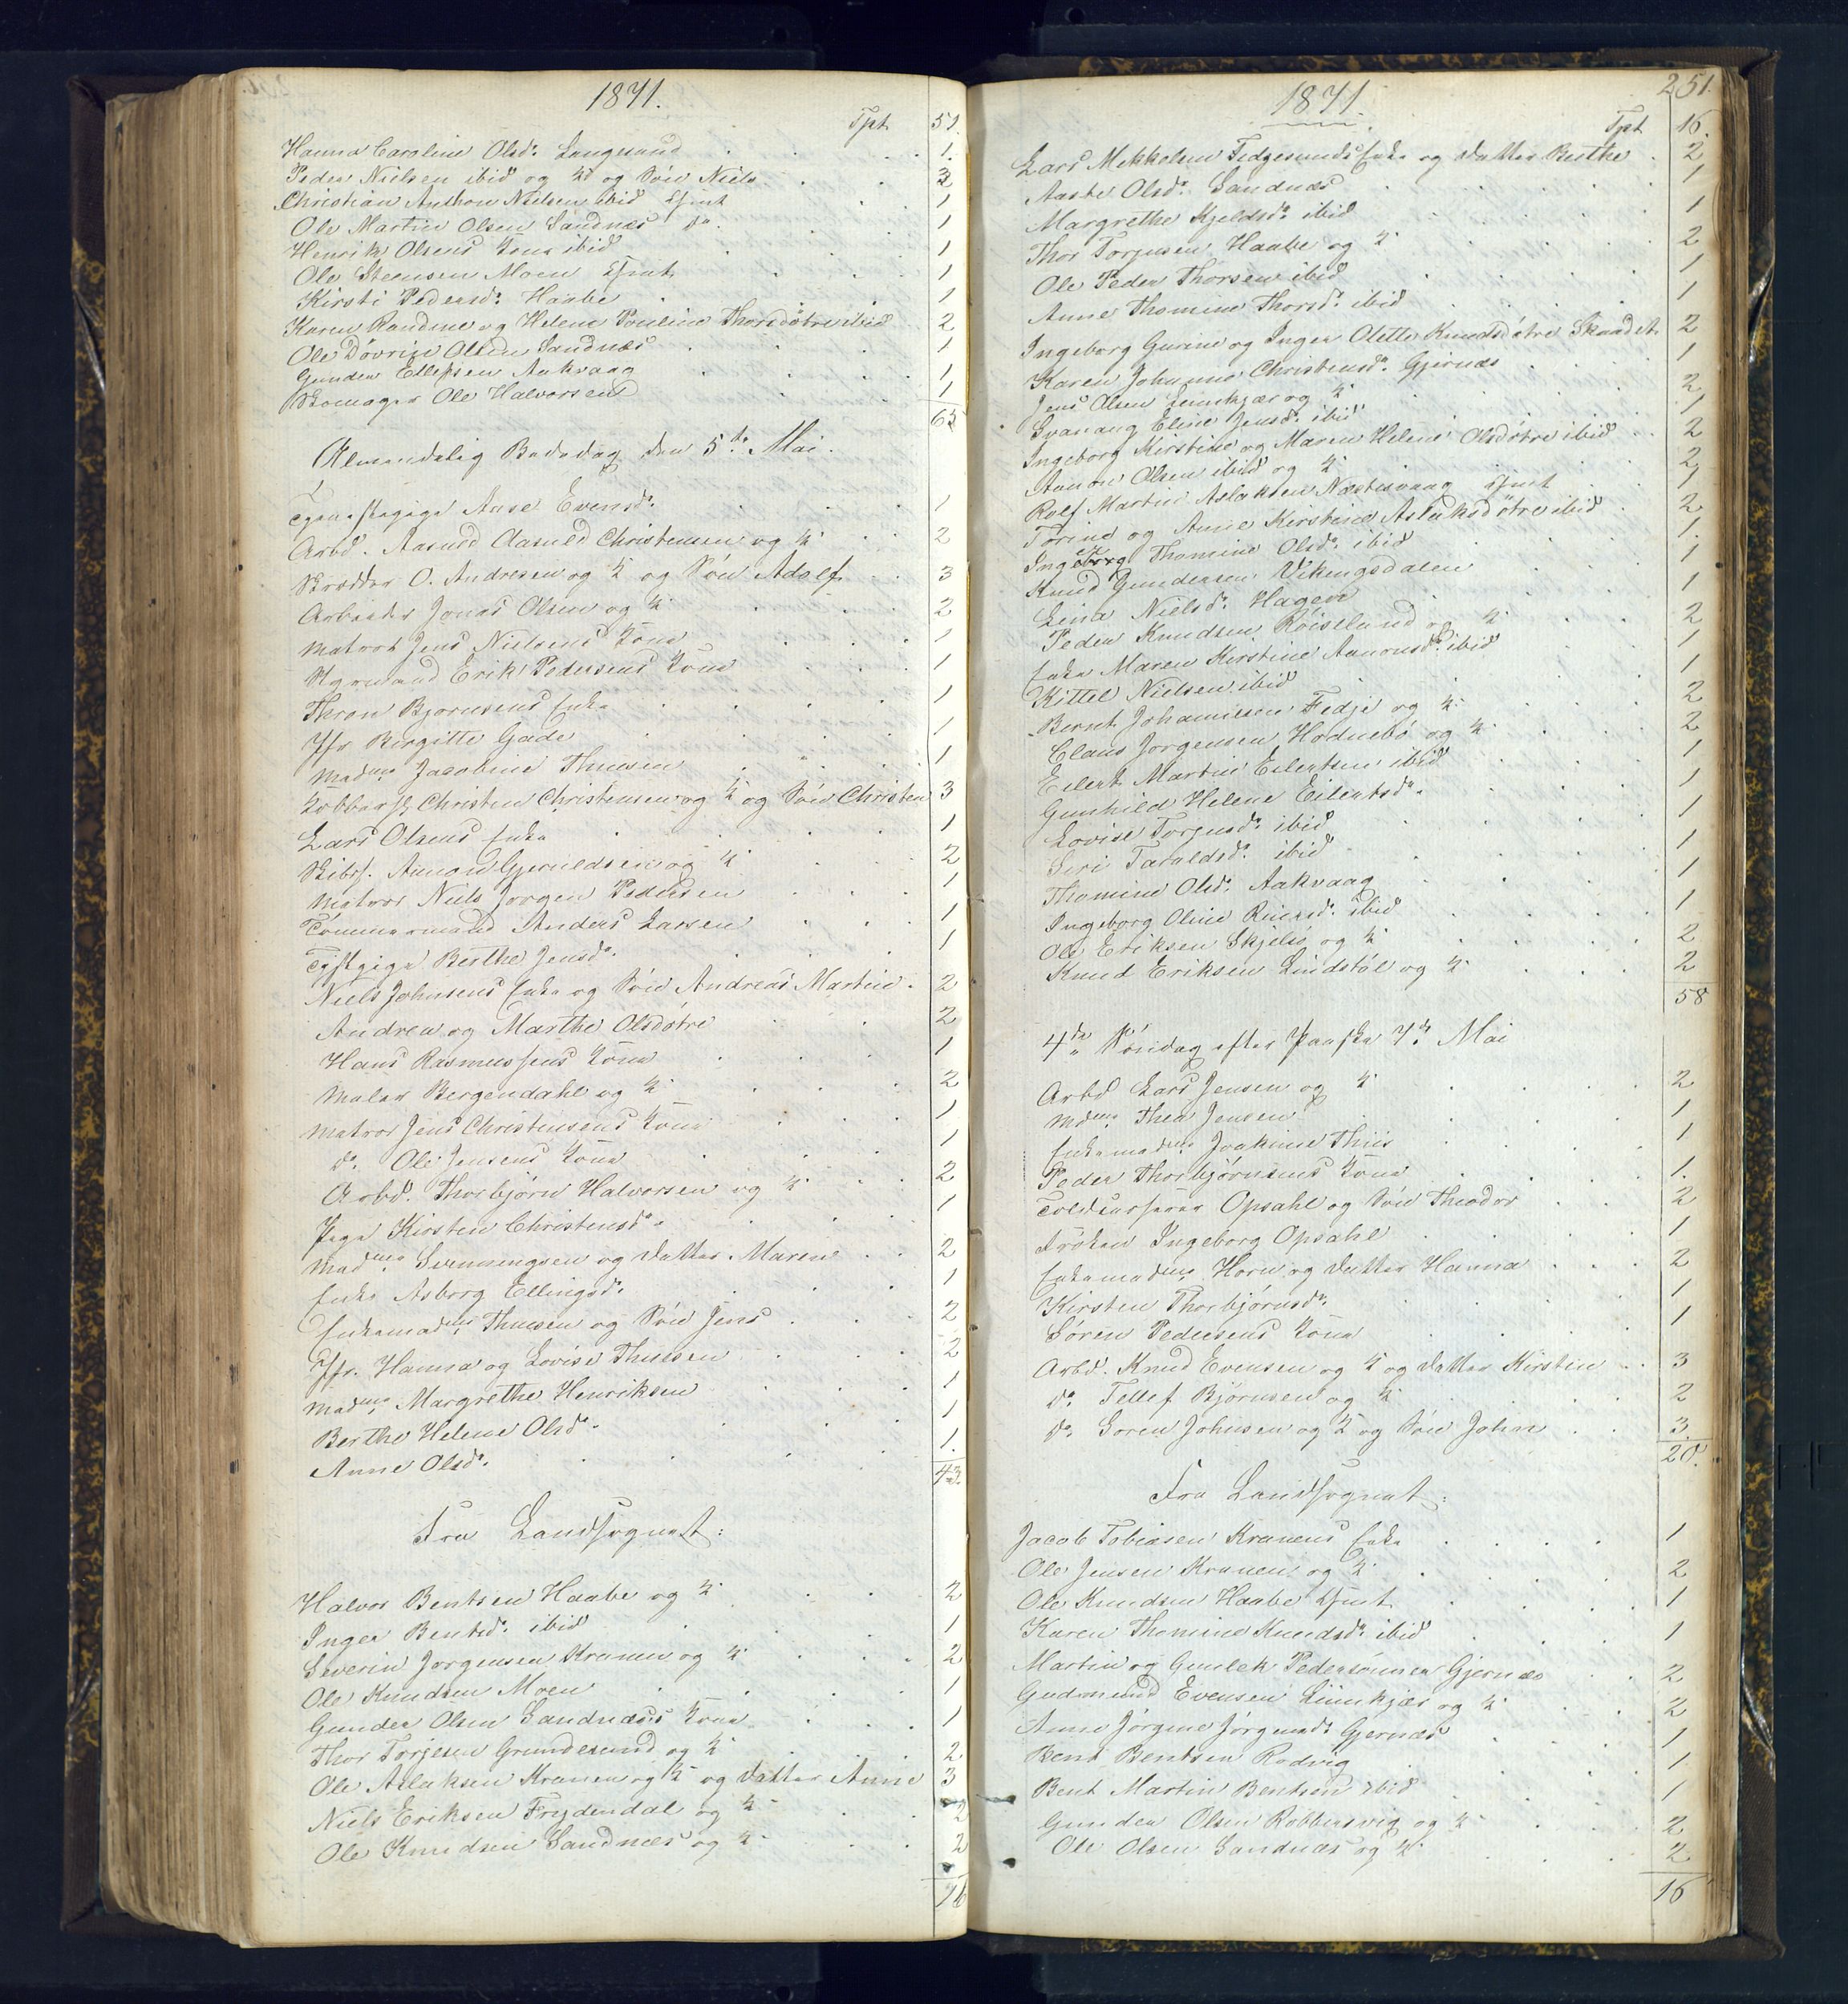 1871.
Tpt. 51.
Hanna Caroline Olsd. Langesund 1.
Peder Nielsen ibid og K og Søn Niels 3
Christian Anthon Nielsen ibid 1
Ole Martin Olsen Sandnæs do. 1
Henrik Olsens Kone ibid 1
Ole Steensen Moen 1
Kirsti Pedersd. Haabe 1
Karen Randine og Helene Pouline Thorsdøtre ibid 2
Ole Døvrin Olsen Sandnæs 1
Gunder Ellefsen Aakvaag 1
Skomager Ole Halvorsen 1
65
Almindelig Bededag den 5te Mai.
Tjenestepige Anne Evensd. 1
Arbd. Aasuld Christensen og K. 2
Skrædder O. Andresen og K og Søn Adolf 3
Arbeider Jonas Olsen og K. 2
Matros Jens Nielsens Kone 1
Styrmand Erik Pedersens Kone 1
Thron Bjørnsens Enke 1
Jfr. Birgitte Gade 1
Madme Jacobine Thuesen 1
Kobbersl. Christen Christensen og K og Søn Christen 3
Lars Olsens Enke 1
Skibsf. Aanon Gjeruldsen og K. 2
Matros Niels Jørgen Pedersen 1
Tømmermand Anders Larsen 1
Tjstpige Berthe Jensd. 1
Niels Johnsens Enke og Søn Andreas Martin. 2
Andrea og Marthe Olsdøtre 2
Hans Rasmussens Kone 1
Maler Bergendahl og K. 2
Matros Jens Christensens Kone 1
do. Ole Jensens Kone 1
Arbd. Thorbjørn Halvorsen og K. 2
Pige Kirsten Christensd. 1
Madme Svenningsen og Datter Maren 2
Enke Asborg Ellingsd. 1
Enkemadme Thuesen og Søn Jens 2
Jfr. Hanna og Lovise Thuesen 2
Madme Margrethe Henriksen 1
Berthe Helene Olsd. 1
Anne Olsd. 1.
43.
Fra Landsognet:
Halvor Bentsen Haabe og K. 2
Inger Bentsd. ibid 1
Severin Jørgensen Kranen og K. 2
Ole Knudsen Moen 1
Gunder Olsen Sandnæs's Kone 1
Thor Torjesen Grundesund og K. 2
Ole Aslaksen Kranen og K og Datter Anne 3
Niels Eriksen Frydendal og K 2
Ole Knudsen Sandnæs og K. 2
16
251.
1871.
Tpt. 16.
Lars Mikkelsen Fedgesunds Enke og Datter Berthe 2
Aaste Olsd. Sandnæs 1
Margrethe Kjeldsd. ibid 1
Thor Torjusen Haabe og K. 2
Ole Peder Thorsen ibid 1
Anne Thomine Thorsd. ibid 1
Ingeborg Gurine og Inger Olette Knudsdøtre Skaadet 2
Karen Johanne Christensd. Gjernæs 1
Jens Olsen Linnkjær og K 2
Svanaug Eline Jensd. ibid 1
Ingeborg Kirstine og Maren Helene Olsdøtre ibid 2
Aanon Olsen ibid og K 2
Rolf Martin Aslaksen Næstesvaag 1
Torine og Anne Kirstine Aslaksdøtre ibid 2
Inger Thomine Olsd. ibid 1.
Knud Gundersen Vikingsdalen 1
Lina Nielsd. Hagen 1
Peder Knudsen Røiseland og K. 2
Enke Maren Kirstine Aanonsd. ibid 1
Kittel Nielsen ibid 1
Bernt Johannesen Fedje og K. 2
Claus Jørgensen Hodnebø og K. 2
Eilert Martin Eilertsen ibid 1
Gunhild Helene Eilertsd. 1
Lovise Torjusd. ibid 1
Siri Taraldsd. ibid 1
Thomine Olsd. Aakvaag 1
Ingeborg Oline Reiersd. ibid 1
Ole Eriksen Skjelsø og K 2
Knud Eriksen Lindstøl og K. 2
58
4de Søndag efter Paaske 7de Mai
Arbd Lars Jensen og K. 2
Mdme Thea Jensen 1
Enkemadme Joakime Thiis 1
Peder Thorbjørnsens Kone 1.
Toldkasserer Opsahl og Søn Theodor 2
Frøken Ingeborg Opsahl 1
Enkemadme Horn og Datter Hanna 2
Kirsten Thorbjørnsd. 1
Søren Pedersens Kone 1
Arbd. Knud Evensen og K og Datter Kirsten 3
do. Tellef Bjørnsen og K. 2
do. Søren Johnsen og K og Søn John 3.
20.
Fra Landsognet:
Jacob Tobiasen Kranens Enke 1
Ole Jensen Kranen og K. 2
Ole Knudsen Haabe 1
Karen Thomine Knudsd. ibid 1
Martin og Gunlek Pedersønner Gjernæs 2
Gudmund Evensen Linnkjær og K. 2
Anne Jørgine Jørgensd. Gjernæs 1
Bent Bentsen Rødvig 1
Bent Martin Bentsen ibid 1
Gunder Olsen Robbersvig og K 2
Ole Olsen Sandnæs og K. 2
16